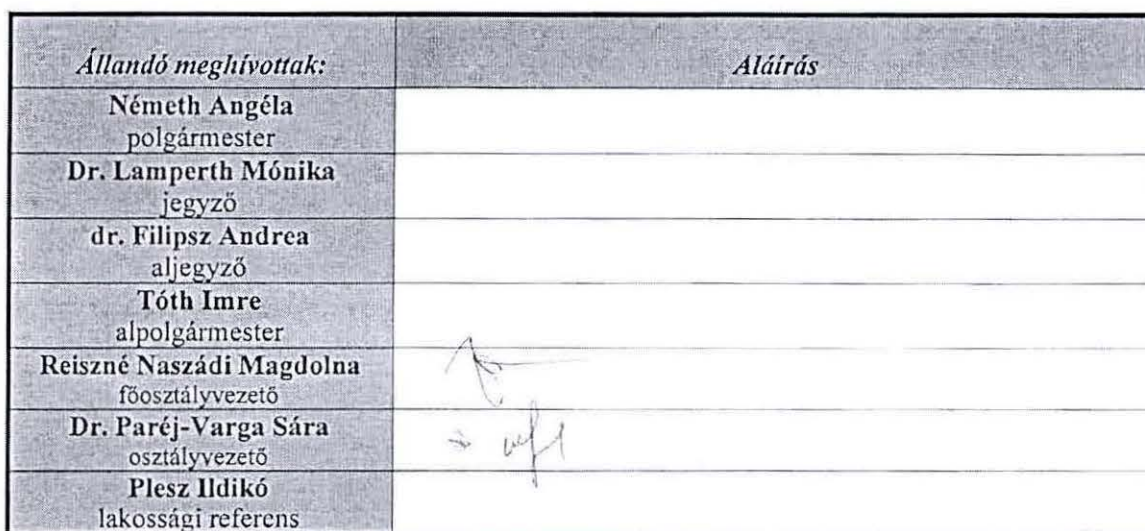 Állandó meghívottak:
Aláírás
Németh Angéla
polgármester
Dr. Lamperth Mónika
jegyző
dr. Filipsz Andrea
aljegyző
Tóth Imre
alpolgármester
Reiszné Naszádi Magdolna
főosztályvezető
Dr. Paréj-Varga Sára
osztályvezető
Plesz Ildikó
lakossági referens